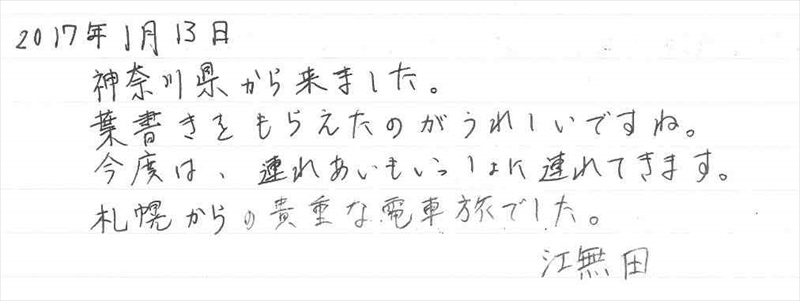 2017年1月13日
神奈川県から来ました。
葉書きをもらえたのがうれしいですね。
今度は、連れあいもいっしょに連れてきます。
札幌からの貴重な電車旅でした。
江無田